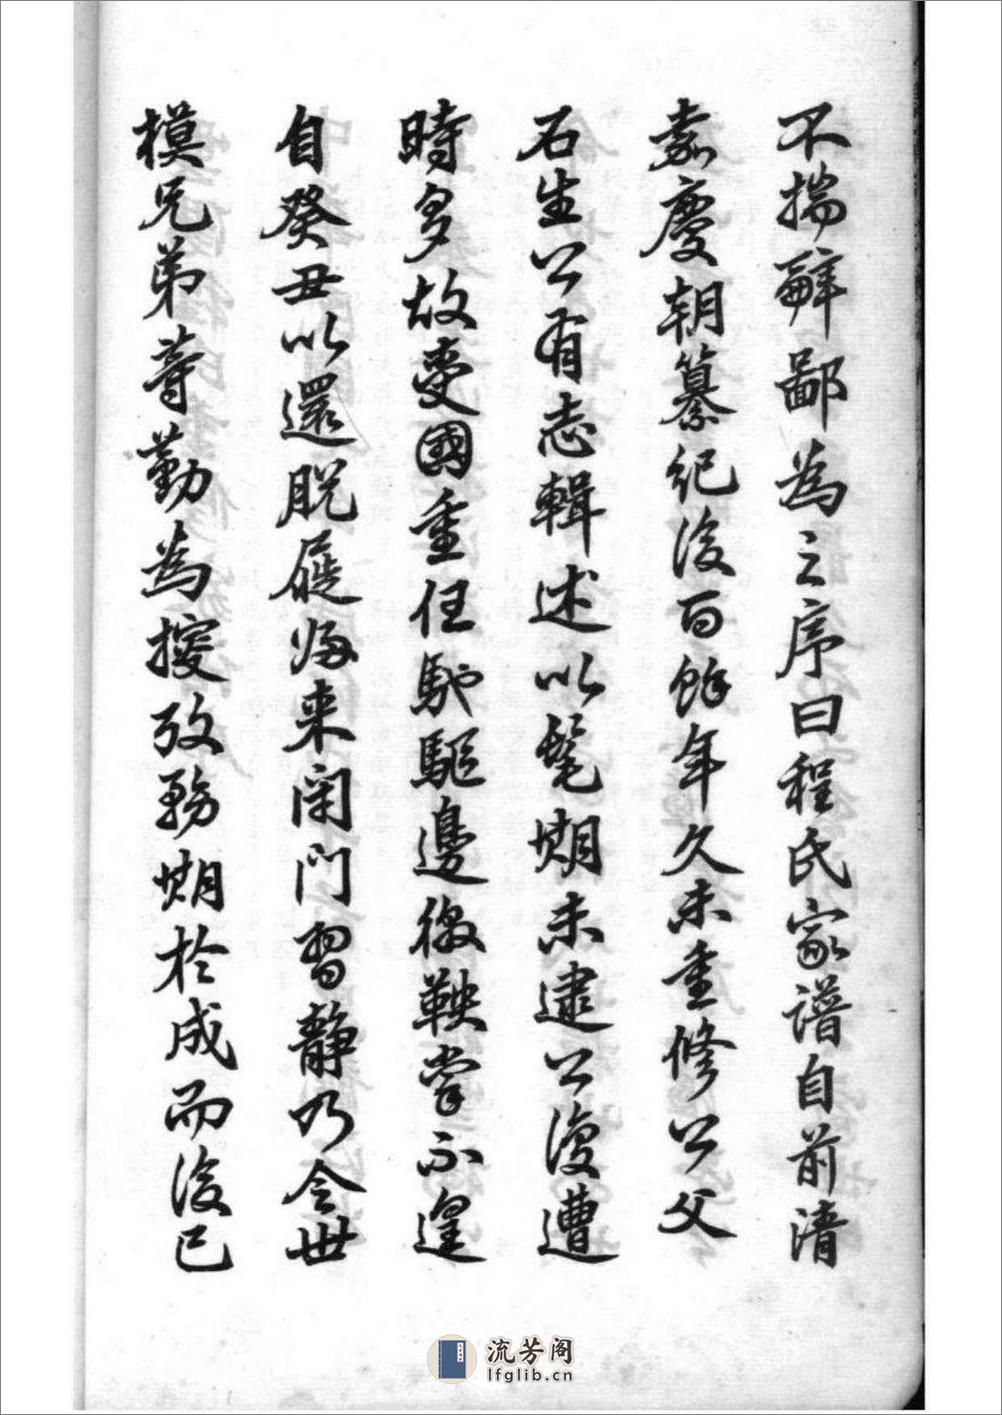 不揣辭鄙為之序曰程氏家譜自前清
嘉慶朝纂紀後百餘年久未重修公父
石生公有志輯述以髦期未逮公復遭
時多故受國重任馳驅邊徼鞅掌不遑
自癸丑以還脫屣歸来閉門習靜乃令世
模兄弟等勤為搜攷務期於成而後已
流芳阁
lfglib.cn